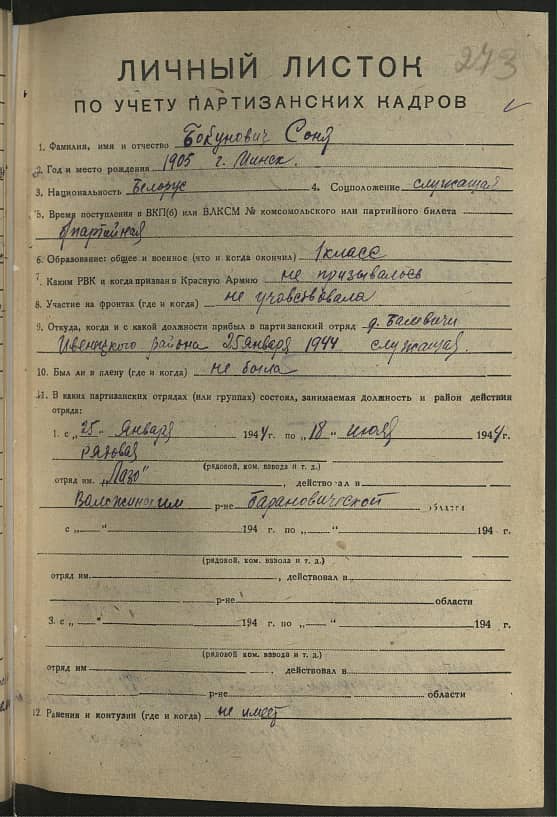 273
ЛИЧНЫЙ ЛИСТОК
ПО УЧЕТУ ПАРТИЗАНСКИХ КАДРОВ
1. Фамилия, имя и отчество Бобунович Соня
2. Год и место рождения 1905 г. Минск.
3. Национальность Белорус 4. Соцположение служащая
5. Время поступления в ВКП(б) или ВЛКСМ № комсомольского или партийного билета
б/партейная
6. Образование: общее и военное (что и когда окончил) 1 класс
7. Каким РВК и когда призван в Красную Армию не призывалось
8. Участие на фронтах (где и когда) не учавствовала
9. Откуда, когда и с какой должности прибыл в партизанский отряд д.
Ивенецкого района 25 января 1944 служащая.
10. Был ли в плену (где и когда) не была
11. В каких партизанских отрядах (или группах) состоял, занимаемая должность и район действия
отряда:
1. с „25" января 1944 г. по „18" июля 1944 г.
рядовая
(рядовой, ком. взвода и т. д.)
отряд им. „Лазо", действовал в
Воложинским р-не Барановической области
с „ " 194 г. по „ " 194 г.
(рядовой, ком. взвола и т. д.)
отряд им. , действовал в
р-не области
3. с „ " 194 г. по „ " 194 г.
(рядовой, ком. взвода и т. д.)
отряд им , действовал в
р-не области
12. Ранения и контузии (где и когда) не имеет